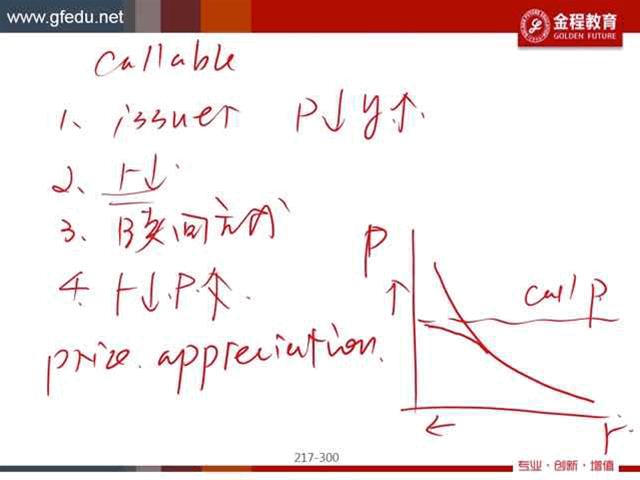 www.gfedu.net
金程教育
GOLDEN FUTURE
callable
1、issuer P↓ y↑.
2、r↓.
3、B买回方式
4. r↓.P.↑.
price. appreciation.
P
↑
call p
←
r.
217-300
专业·创新·增值